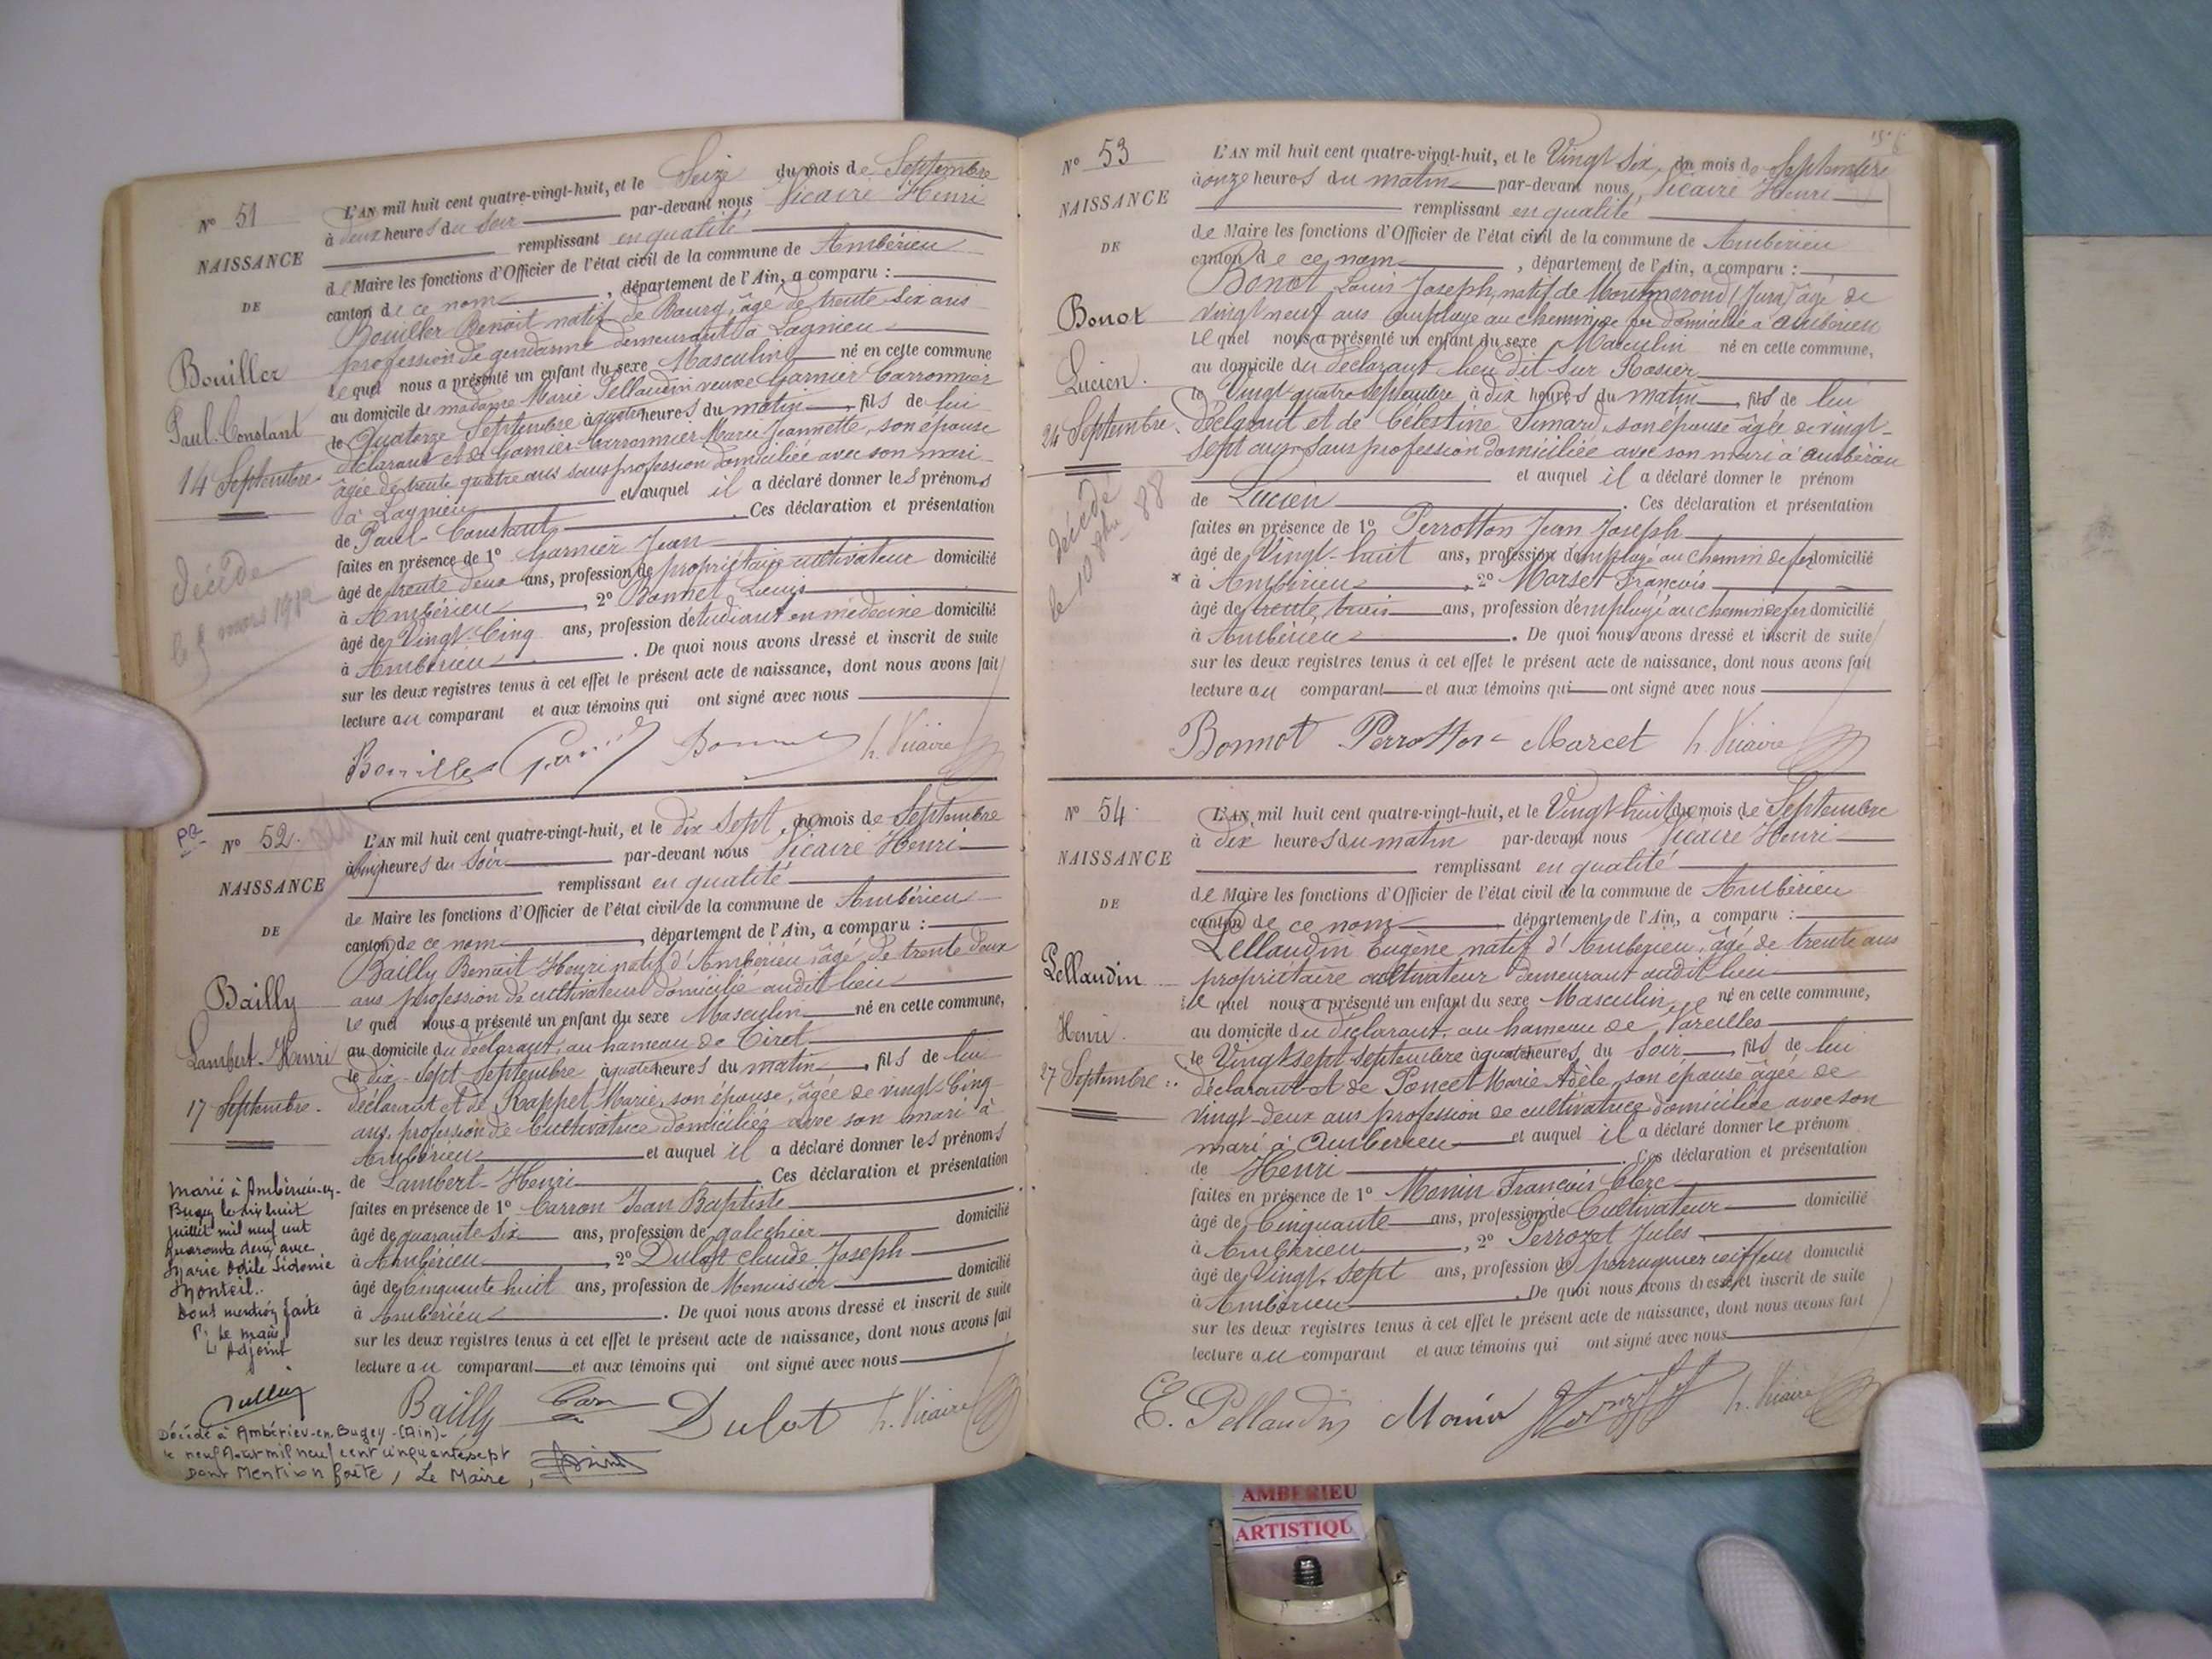 N° 51
NAISSANCE
DE
Bouiller
Paul-Constant
14 Septembre
décédé
le mars 1912
L'AN mil huit cent quatre-vingt-huit, et le Seize du mois de Septembre
à deux heures du soir par-devant nous Vicaire Henri
remplissant en qualité
de Maire les fonctions d'Officier de l'état civil de la commune de Ambérieu
canton de ce nom, département de l'Ain, a comparu :
Bouiller Benoit natif de Bourg, âgé de trente six ans
profession de gendarme demeurant à Lagnieu
lequel nous a présenté un enfant du sexe Masculin né en cette commune
au domicile de madame Marie Pellaudin veuve Garnier Carronnier
le Quatorze Septembre à quatre heures du matin, fils de lui
déclarant et de Garnier-Carronnier Marie Jeannette, son épouse
âgée de trente quatre ans sans profession domiciliée avec son mari
à Lagnieu et auquel il a déclaré donner les prénoms
de Paul-Constant. Ces déclaration et présentation
faites en présence de 1° Garnier Jean
âgé de trente deux ans, profession de propriétaire cultivateur domicilié
à Ambérieu, 2° Bonnet Louis
âgé de Vingt-Cinq ans, profession d'étudiant en médecine domicilié
à Ambérieu. De quoi nous avons dressé et inscrit de suite
sur les deux registres tenus à cet effet le présent acte de naissance, dont nous avons fait
lecture au comparant et aux témoins qui ont signé avec nous
Bouiller Bonnet h. Vicaire
N° 52.
NAISSANCE
DE
Bailly
Lambert-Henri
17 Septembre.
L'AN mil huit cent quatre-vingt-huit, et le dix Sept du mois de Septembre
à Cinq heures du soir par-devant nous Vicaire Henri
remplissant en qualité
de Maire les fonctions d'Officier de l'état civil de la commune de Ambérieu
canton de ce nom, département de l'Ain, a comparu :
Bailly Benoit Henri natif d'Ambérieu âgé de trente deux
ans profession de cultivateur domicilié audit lieu
lequel nous a présenté un enfant du sexe Masculin né en cette commune,
au domicile du déclarant, au hameau de Tiret
le dix-Sept Septembre à quatre heures du matin, fils de lui
déclarant et de Rappet Marie, son épouse, âgée de vingt Cinq
ans, profession de Cultivatrice domiciliée avec son mari à
Ambérieu et auquel il a déclaré donner les prénoms
de Lambert-Henri Ces déclaration et présentation
faites en présence de 1° Carron Jean Baptiste
âgé de quarante six ans, profession de galochier domicilié
à Ambérieu, 2° Dulot Claude Joseph
âgé de Cinquante huit ans, profession de Menuisier domicilié
à Ambérieu. De quoi nous avons dressé et inscrit de suite
sur les deux registres tenus à cet effet le présent acte de naissance, dont nous avons fait
lecture au comparant et aux témoins qui ont signé avec nous
Bailly Dulot h. Vicaire
Marié à Ambérieu-en-
Bugey le dix huit
juillet mil neuf cent
quarante deux avec
Marie Odile Sidonie
Monteil.
Dont mention faite
Pr le maire
L'Adjoint
Décédé à Ambérieu-en-Bugey-(Ain)-
le neuf Août mil neuf cent cinquante sept
Dont Mention faite, Le Maire,
N° 53
NAISSANCE
DE
Bonot
Lucien.
24 Septembre.
décédé
le 10 8bre 88
L'AN mil huit cent quatre-vingt-huit, et le Vingt Six du mois de Septembre
à onze heures du matin par-devant nous Vicaire Henri
remplissant en qualité
de Maire les fonctions d'Officier de l'état civil de la commune de Ambérieu
canton de ce nom, département de l'Ain, a comparu :
Bonot Louis Joseph, natif de Montmerond (Jura) âgé de
vingt neuf ans employé au chemin de fer domicilié à Ambérieu
Lequel nous a présenté un enfant du sexe Masculin né en cette commune,
au domicile du déclarant lieu dit sur Rosier
le Vingt-quatre Septembre, à dix heures du matin, fils de lui
déclarant et de Célestine Simard, son épouse âgée de vingt-
sept ans sans profession domiciliée avec son mari à Ambérieu
et auquel il a déclaré donner le prénom
de Lucien. Ces déclaration et présentation
faites en présence de 1° Perrotton Jean Joseph
âgé de Vingt-huit ans, profession d'employé au chemin de fer domicilié
à Ambérieu, 2° Marset François
âgé de trente trois ans, profession d'employé au chemin de fer domicilié
à Ambérieu. De quoi nous avons dressé et inscrit de suite
sur les deux registres tenus à cet effet le présent acte de naissance, dont nous avons fait
lecture au comparant et aux témoins qui ont signé avec nous
Bonnot Perrotton Marcet h. Vicaire
N° 54
NAISSANCE
DE
Pellaudin
Henri.
27 Septembre.
L'AN mil huit cent quatre-vingt-huit, et le Vingt huit du mois de Septembre
à dix heures du matin par-devant nous Vicaire Henri
remplissant en qualité
de Maire les fonctions d'Officier de l'état civil de la commune de Ambérieu
canton de ce nom, département de l'Ain, a comparu :
Pellaudin Eugène natif d'Ambérieu, âgé de trente ans
propriétaire cultivateur demeurant audit lieu
le quel nous a présenté un enfant du sexe Masculin né en cette commune,
au domicile du déclarant, au hameau de Vareilles
le Vingt sept septembre à quatre heures du Soir, fils de lui
déclarant et de Poncet Marie Adèle, son épouse âgée de
vingt-deux ans profession de cultivatrice domiciliée avec son
mari à Ambérieu et auquel il a déclaré donner le prénom
de Henri. Ces déclaration et présentation
faites en présence de 1° Monin François Clerc
âgé de Cinquante ans, profession de Cultivateur domicilié
à Ambérieu, 2° Perrozet Jules
âgé de Vingt-sept ans, profession de perruquier coiffeur domicilié
à Ambérieu. De quoi nous avons dressé et inscrit de suite
sur les deux registres tenus à cet effet le présent acte de naissance, dont nous avons fait
lecture au comparant et aux témoins qui ont signé avec nous
E. Pellaudin Monin h. Vicaire
AMBERIEU
ARTISTIQU